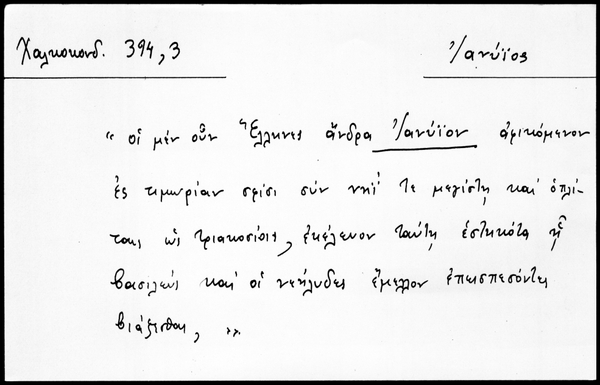 Χαλκοκονδ. 394,3
Ἰανύϊος
"οἱ μὲν οὖν Ἕλληνες ἄνδρα Ἰανύϊον ἀφικόμενον
ἐς τιμωρίαν σφίσι σύν νηΐ τε μεγίστῃ καὶ ὁπλί-
ταις ὡς τριακοσίοις, ἐκέλευον ταύτῃ ἑστηκότα ᾗ
βασιλεὺς καὶ οἱ νεήλυδες ἔμελλον ἐπεισπεσόντες
βιάζεσθαι, "..